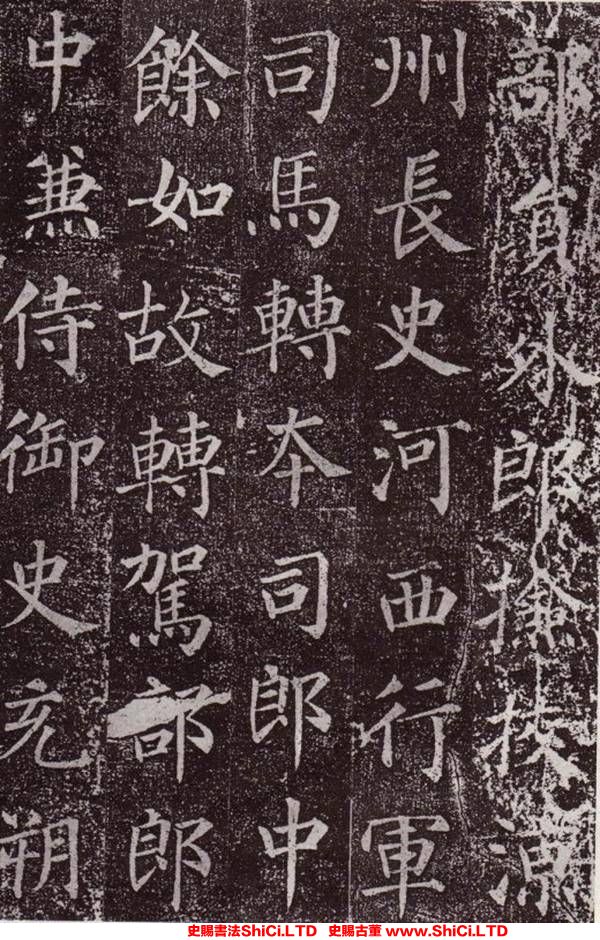 部員外郎撿挍潮
州長史河西行軍
司馬轉本司郎中
餘如故轉駕部郎
中兼侍御史充朔
史賜書法ShiCi.LTD 史賜古董 www.ShiCi.LTD